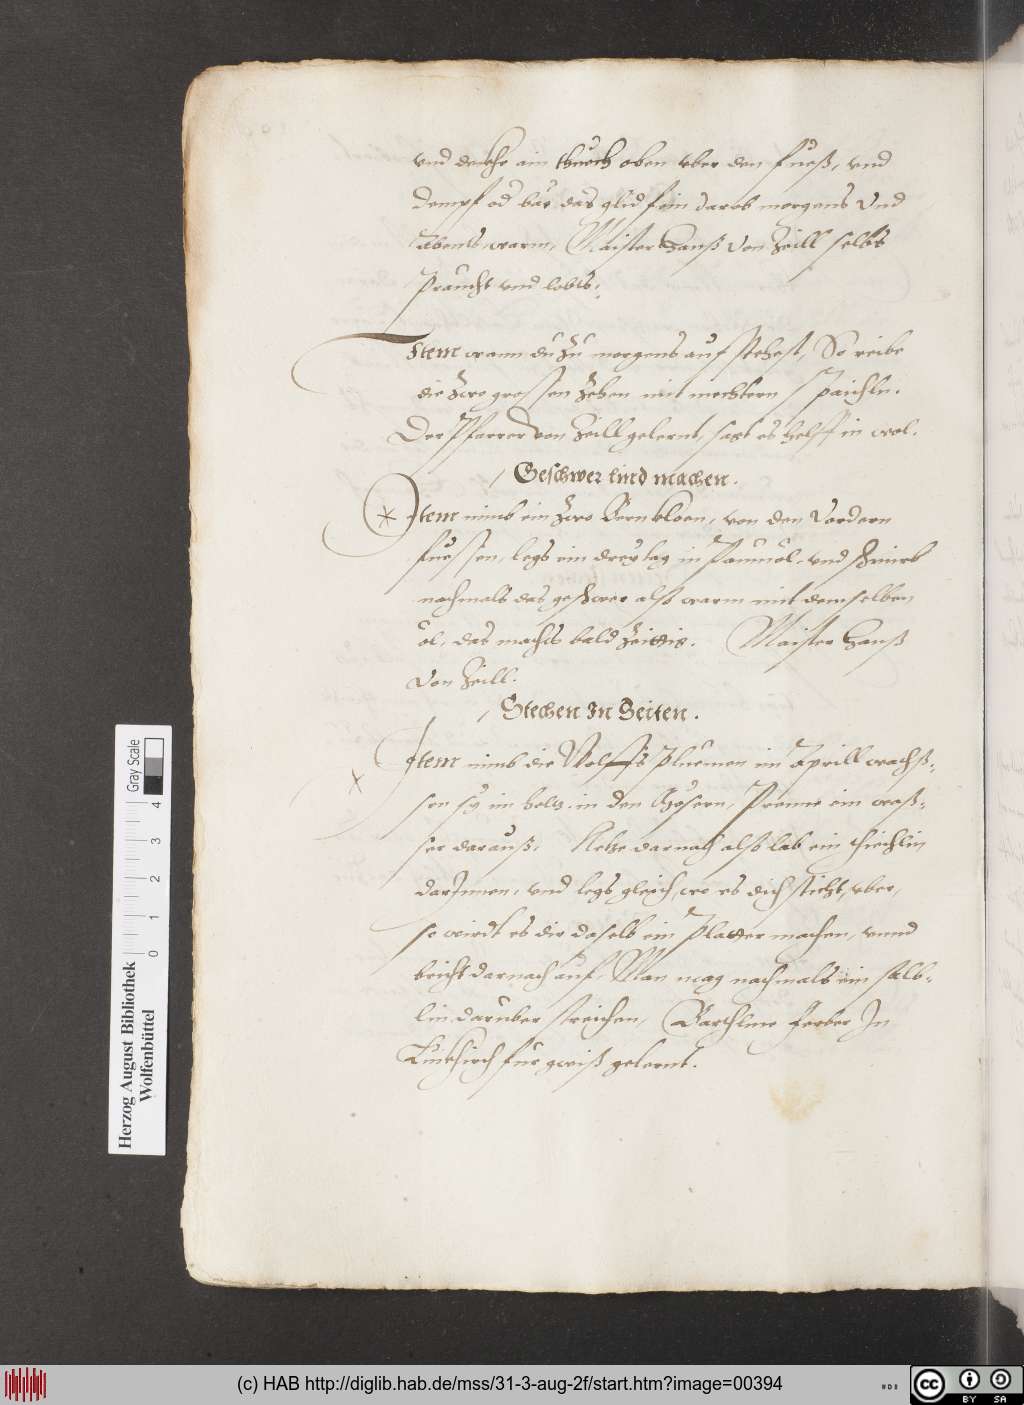 vnd deckhe ain thuech oben vber den fueß, vnd
dempf od bäe das glid fein darob morgens Vnd
Abents warm, Maister Hanß Von Zeill selbs
Praucht vnd lobts:
Item wann du Zu morgens auf stehest, So reibe
die Zwo grossen Zehen mit nechtern Spaichln.
Der Pfarrer von Zeill gelernt, sagt es helff in wol.
/ Geschwer lind machen.
Item nimb ein Zwo Bern kloen, von den Vordern
fuessen, legs ein drey tag in Paumöl, vnd schmirb
nachmals das geschwer alß warm mit demselben
öl, das machts bald Zeittig. Maister Hanß
Von Zeill.
/ Stechen In Seiten.
Item nimb die Wolffs Pluemen im Aprill wachß-
sen sy im holtz, in den Gesern, Prenne ein waß-
ser darauß, Netze darnach alß lab ein thiechlin
darInnen, vnd legs gleich, wo es dich sticht, vber,
so wirdt es dir daselb ein Platter machen, vnnd
bricht darnach auf, Man mag nachmals ein salb-
lin daruber streichen, Barthlme Ferber In
Leükhirch fur gwiß gelernt.
Herzog August Bibliothek
Wolfenbüttel
0 1 2 3 4
Gray Scale
(c) HAB http://diglib.hab.de/mss/31-3-aug-2f/start.htm?image=00394
cc BY SA